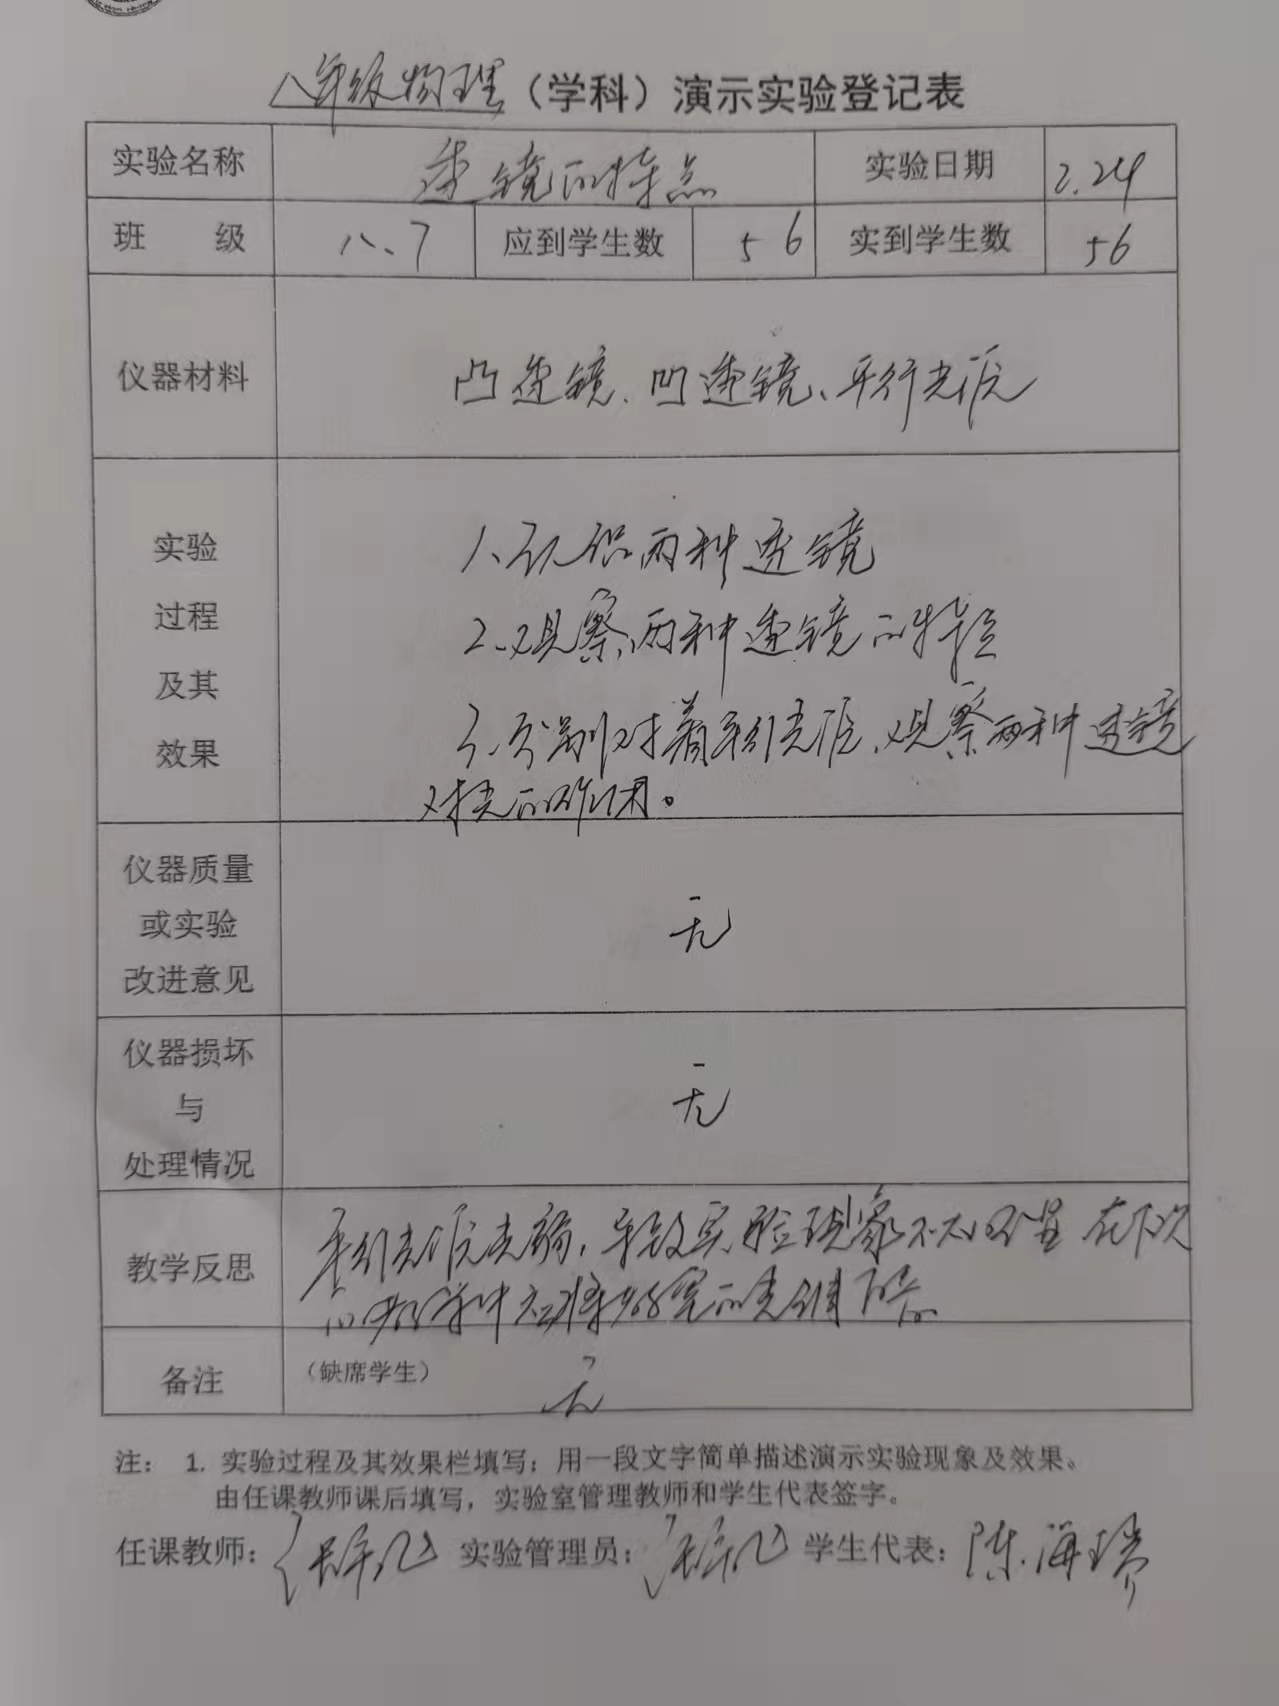 八年级物理（学科）演示实验登记表
实验名称 透镜的特点 实验日期 2.24
班 级 八、7 应到学生数 56 实到学生数 56
仪器材料 凸透镜、凹透镜、平行光源
实验
过程
及其
效果
1、认识两种透镜
2、观察两种透镜的特点
3、分别对着平行光源、观察两种透镜
对光的作用。
仪器质量
或实验
改进意见
无
仪器损坏
与
处理情况
无
教学反思
平行光源光弱，导致实验现象不太明显 在下次
的教学中应将教室的光调暗
备注 （缺席学生） 无
注： 1. 实验过程及其效果栏填写：用一段文字简单描述演示实验现象及效果。
由任课教师课后填写，实验室管理教师和学生代表签字。
任课教师： 实验管理员： 学生代表：陈海